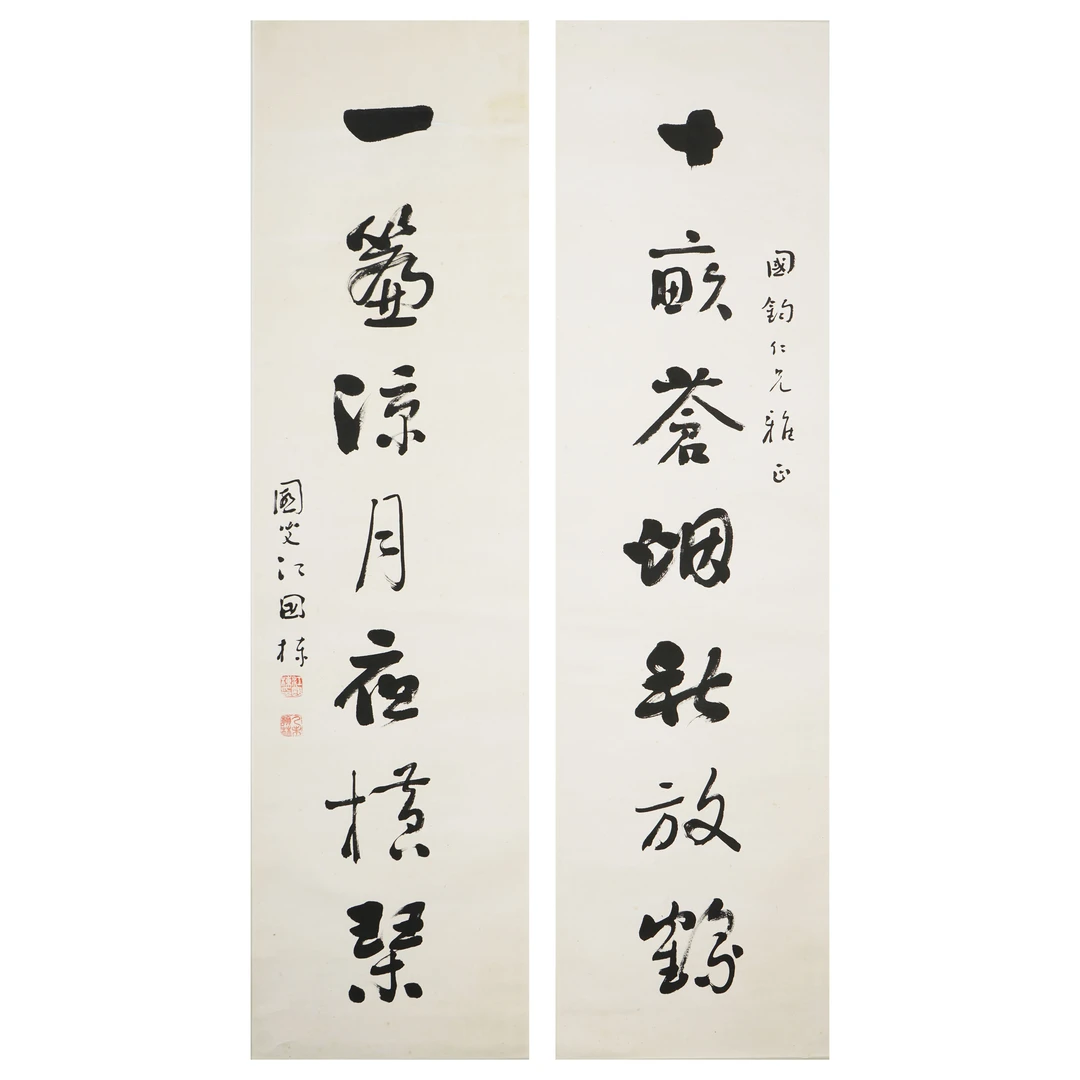 十畝蒼烟秋放鶴
國鈞仁兄雅正
一簾涼月夜橫琴
江国棟